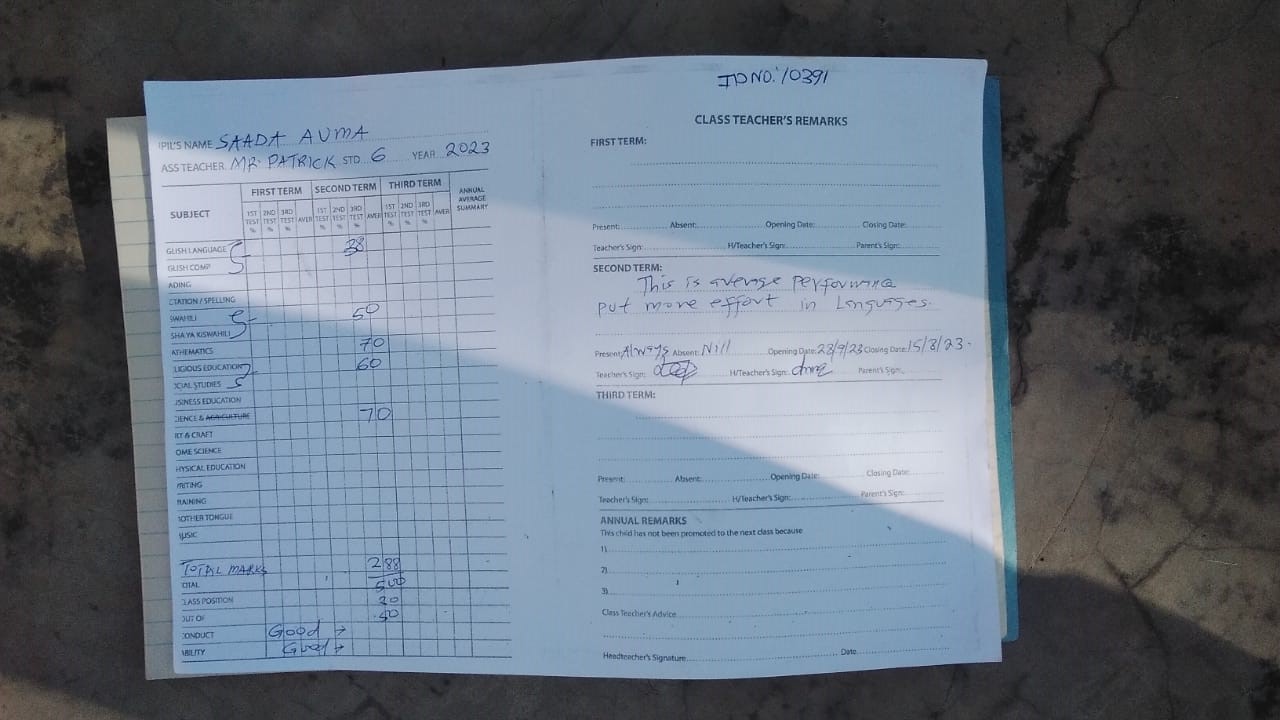 IPIL'S NAME SAADA AUMA
ASS TEACHER MR. PATRICK STD. 6 YEAR 2023
SUBJECT FIRST TERM SECOND TERM THIRD TERM ANNUAL AVERAGE SUMMARY
1ST TEST % 2ND TEST % 3RD TEST % AVER 1ST TEST % 2ND TEST % 3RD TEST % AVER 1ST TEST % 2ND TEST % 3RD TEST % AVER
GLISH LANGUAGE 38
GLISH COMP
ADING
CTATION / SPELLING
SWAHILI 50
SHA YA KISWAHILI
ATHEMATICS 70
LIGIOUS EDUCATION 60
OCIAL STUDIES
USINESS EDUCATION
IENCE & AGRICULTURE 70
RT & CRAFT
OME SCIENCE
HYSICAL EDUCATION
RITING
RAINING
OTHER TONGUE
USIC
TOTAL MARKS 288
OTAL 500
LASS POSITION 30
OUT OF 50
ONDUCT Good
ABILITY Good
ID NO: 10391
CLASS TEACHER'S REMARKS
FIRST TERM:
Present: Absent: Opening Date: Closing Date:
Teacher's Sign: H/Teacher's Sign: Parent's Sign:
SECOND TERM:
This is average performnce
put more effort in Languages.
Present: Always Absent: Nill Opening Date: 28/9/23 Closing Date: 15/8/23.
Teacher's Sign: H/Teacher's Sign: Parent's Sign:
THIRD TERM:
Present: Absent: Opening Date: Closing Date:
Teacher's Sign: H/Teacher's Sign: Parent's Sign:
ANNUAL REMARKS
This child has not been promoted to the next class because
1)
2)
3)
Class Teacher's Advice
Headteacher's Signature Date